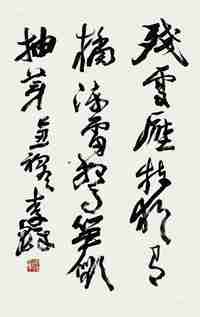 殘雪壓枝猶有
橘凍雷驚笋欲
抽芽 李鐸